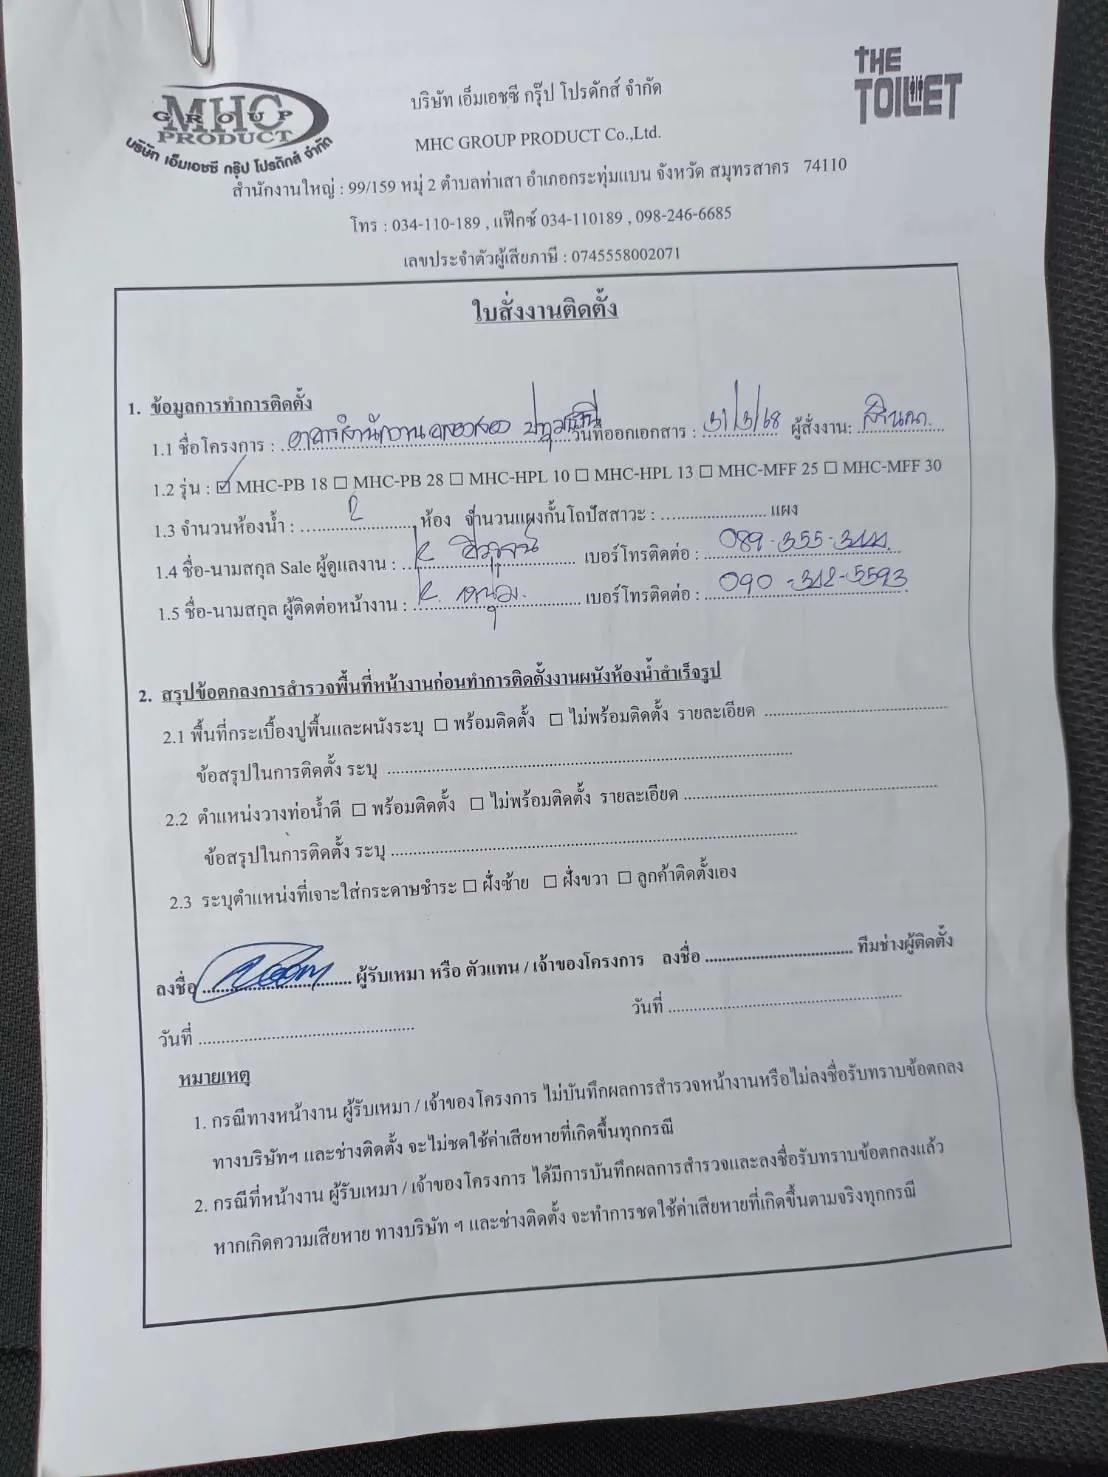 MHC
GROUP
PRODUCT
บริษัท เอ็มเอชซี กรุ๊ป โปรดักส์ จำกัด
THE
TOILET
บริษัท เอ็มเอชซี กรุ๊ป โปรดักส์ จำกัด
MHC GROUP PRODUCT Co.,Ltd.
สำนักงานใหญ่ : 99/159 หมู่ 2 ตำบลท่าเสา อำเภอกระทุ่มแบน จังหวัด สมุทรสาคร 74110
โทร : 034-110-189 , แฟ๊กซ์ 034-110189 , 098-246-6685
เลขประจำตัวผู้เสียภาษี : 0745558002071
ใบสั่งงานติดตั้ง
1. ข้อมูลการทำการติดตั้ง
1.1 ชื่อโครงการ : อาคารสำนักงาน คลองสอง ปทุมธานี วันที่ออกเอกสาร : 31/3/68 ผู้สั่งงาน:
1.2 รุ่น : ☑ MHC-PB 18 □ MHC-PB 28 □ MHC-HPL 10 □ MHC-HPL 13 □ MHC-MFF 25 □ MHC-MFF 30
1.3 จำนวนห้องน้ำ : 2 ห้อง จำนวนแผงกั้นโถปัสสาวะ : ........................ แผง
1.4 ชื่อ-นามสกุล Sale ผู้ดูแลงาน : K. เบอร์โทรติดต่อ : 089-355-3444
1.5 ชื่อ-นามสกุล ผู้ติดต่อหน้างาน : K. เบอร์โทรติดต่อ : 090-312-5593
2. สรุปข้อตกลงการสำรวจพื้นที่หน้างานก่อนทำการติดตั้งงานผนังห้องน้ำสำเร็จรูป
2.1 พื้นที่กระเบื้องปูพื้นและผนังระบุ □ พร้อมติดตั้ง □ ไม่พร้อมติดตั้ง รายละเอียด ........................................
ข้อสรุปในการติดตั้ง ระบุ ........................................................................
2.2 ตำแหน่งวางท่อน้ำดี □ พร้อมติดตั้ง □ ไม่พร้อมติดตั้ง รายละเอียด ........................................................
ข้อสรุปในการติดตั้ง ระบุ ........................................................................
2.3 ระบุตำแหน่งที่เจาะใส่กระดาษชำระ □ ฝั่งซ้าย □ ฝั่งขวา □ ลูกค้าติดตั้งเอง
ลงชื่อ ................................ ผู้รับเหมา หรือ ตัวแทน / เจ้าของโครงการ ลงชื่อ ................................ ทีมช่างผู้ติดตั้ง
วันที่ ................................................ วันที่ ................................................
หมายเหตุ
1. กรณีทางหน้างาน ผู้รับเหมา / เจ้าของโครงการ ไม่บันทึกผลการสำรวจหน้างานหรือไม่ลงชื่อรับทราบข้อตกลง
ทางบริษัทฯ และช่างติดตั้ง จะไม่ชดใช้ค่าเสียหายที่เกิดขึ้นทุกกรณี
2. กรณีที่หน้างาน ผู้รับเหมา / เจ้าของโครงการ ได้มีการบันทึกผลการสำรวจและลงชื่อรับทราบข้อตกลงแล้ว
หากเกิดความเสียหาย ทางบริษัท ฯ และช่างติดตั้ง จะทำการชดใช้ค่าเสียหายที่เกิดขึ้นตามจริงทุกกรณี